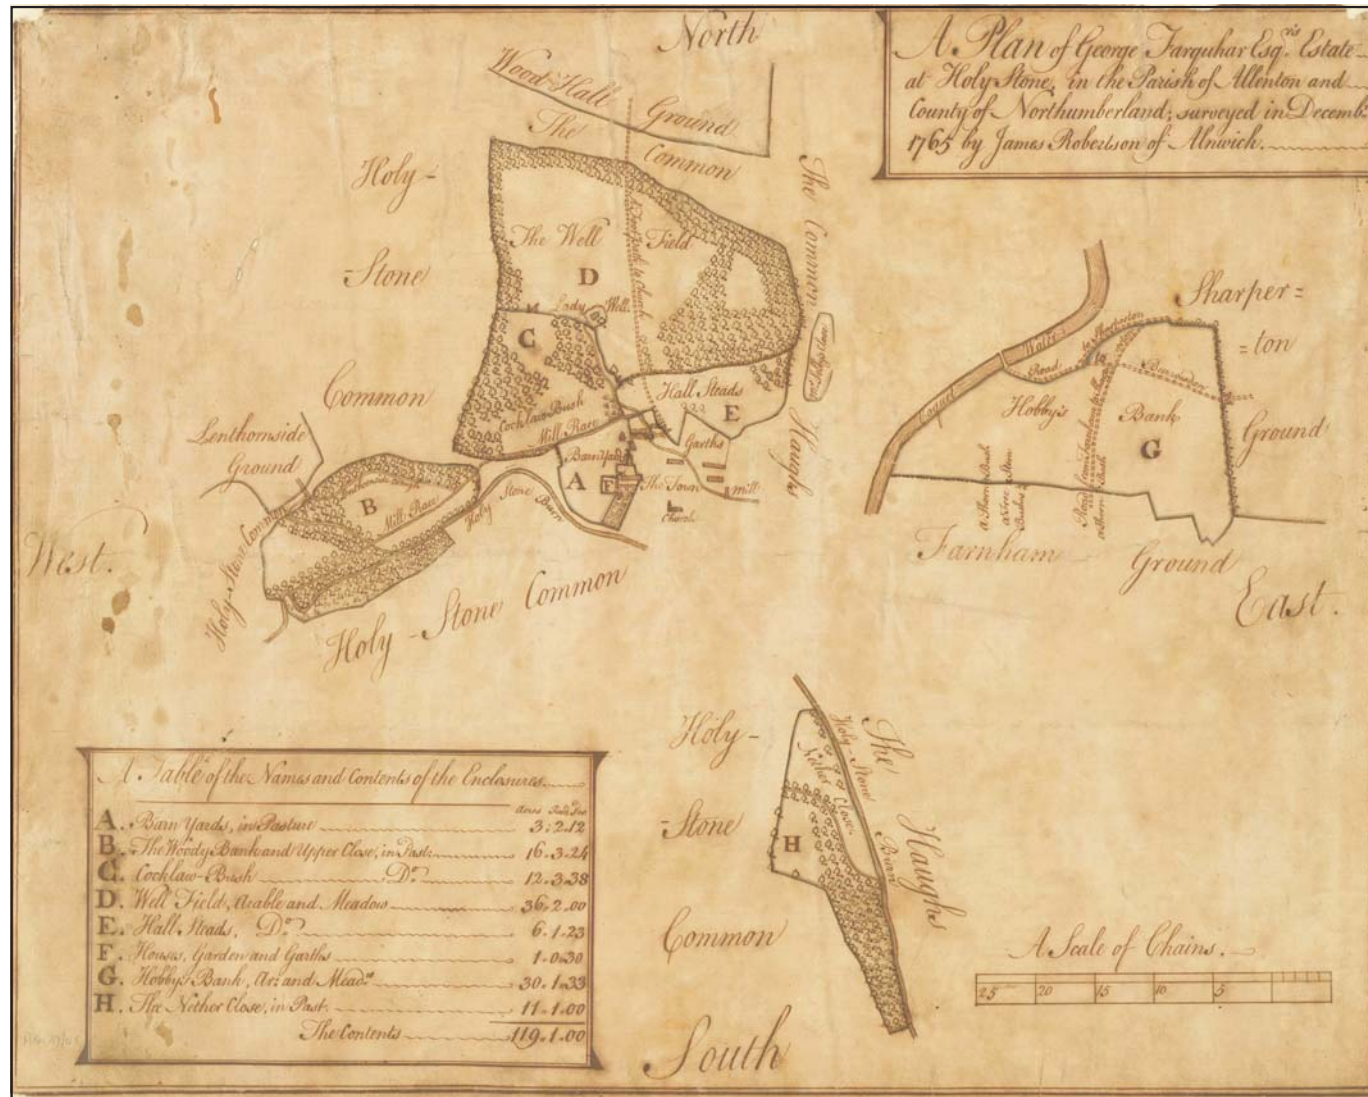 North
A Plan of George Farquhar Esq.rs Estate
at Holy Stone, in the Parish of Allenton and
County of Northumberland; surveyed in Decemb.
1765 by James Robertson of Alnwick.
Wood-Hall
Ground
The
Common
Holy-
-Stone
Common
The Common
Haughs
The Well Field
D
Lady Well
C
Cocklaw Bush
Mill Race
Hall Steads
E
Garths
Barn Yards
A
F
The Town
Mill
Church
Lenthornside
Ground
B
Mill Race
Holy Stone Burn
Holy-Stone Common
Holy-Stone Common
West.
Sharper=
=ton
Ground
Coquet
Water
Road to Sharperton
Hobby's Bank
G
a Thorn Bush
Farnham Ground
East.
Holy-
-Stone
Common
Nether Close
H
Holy-Stone Burn
The
Haughs
A Table of the Names and Contents of the Enclosures.
Acres
A. Barn Yards, in Pasture 3.2.12
B. The Woody Bank and Upper Close, in Past: 16.3.24
C. Cocklaw-Bush Do. 12.3.38
D. Well Field, Arable and Meadow 36.2.00
E. Hall Steads, Do. 6.1.23
F. Houses, Garden and Garths 1.0.30
G. Hobby's Bank, Ar: and Meadw. 30.1.33
H. The Nether Close, in Past. 11.1.00
The Contents 119.1.00
A Scale of Chains.
25 20 15 10 5
South